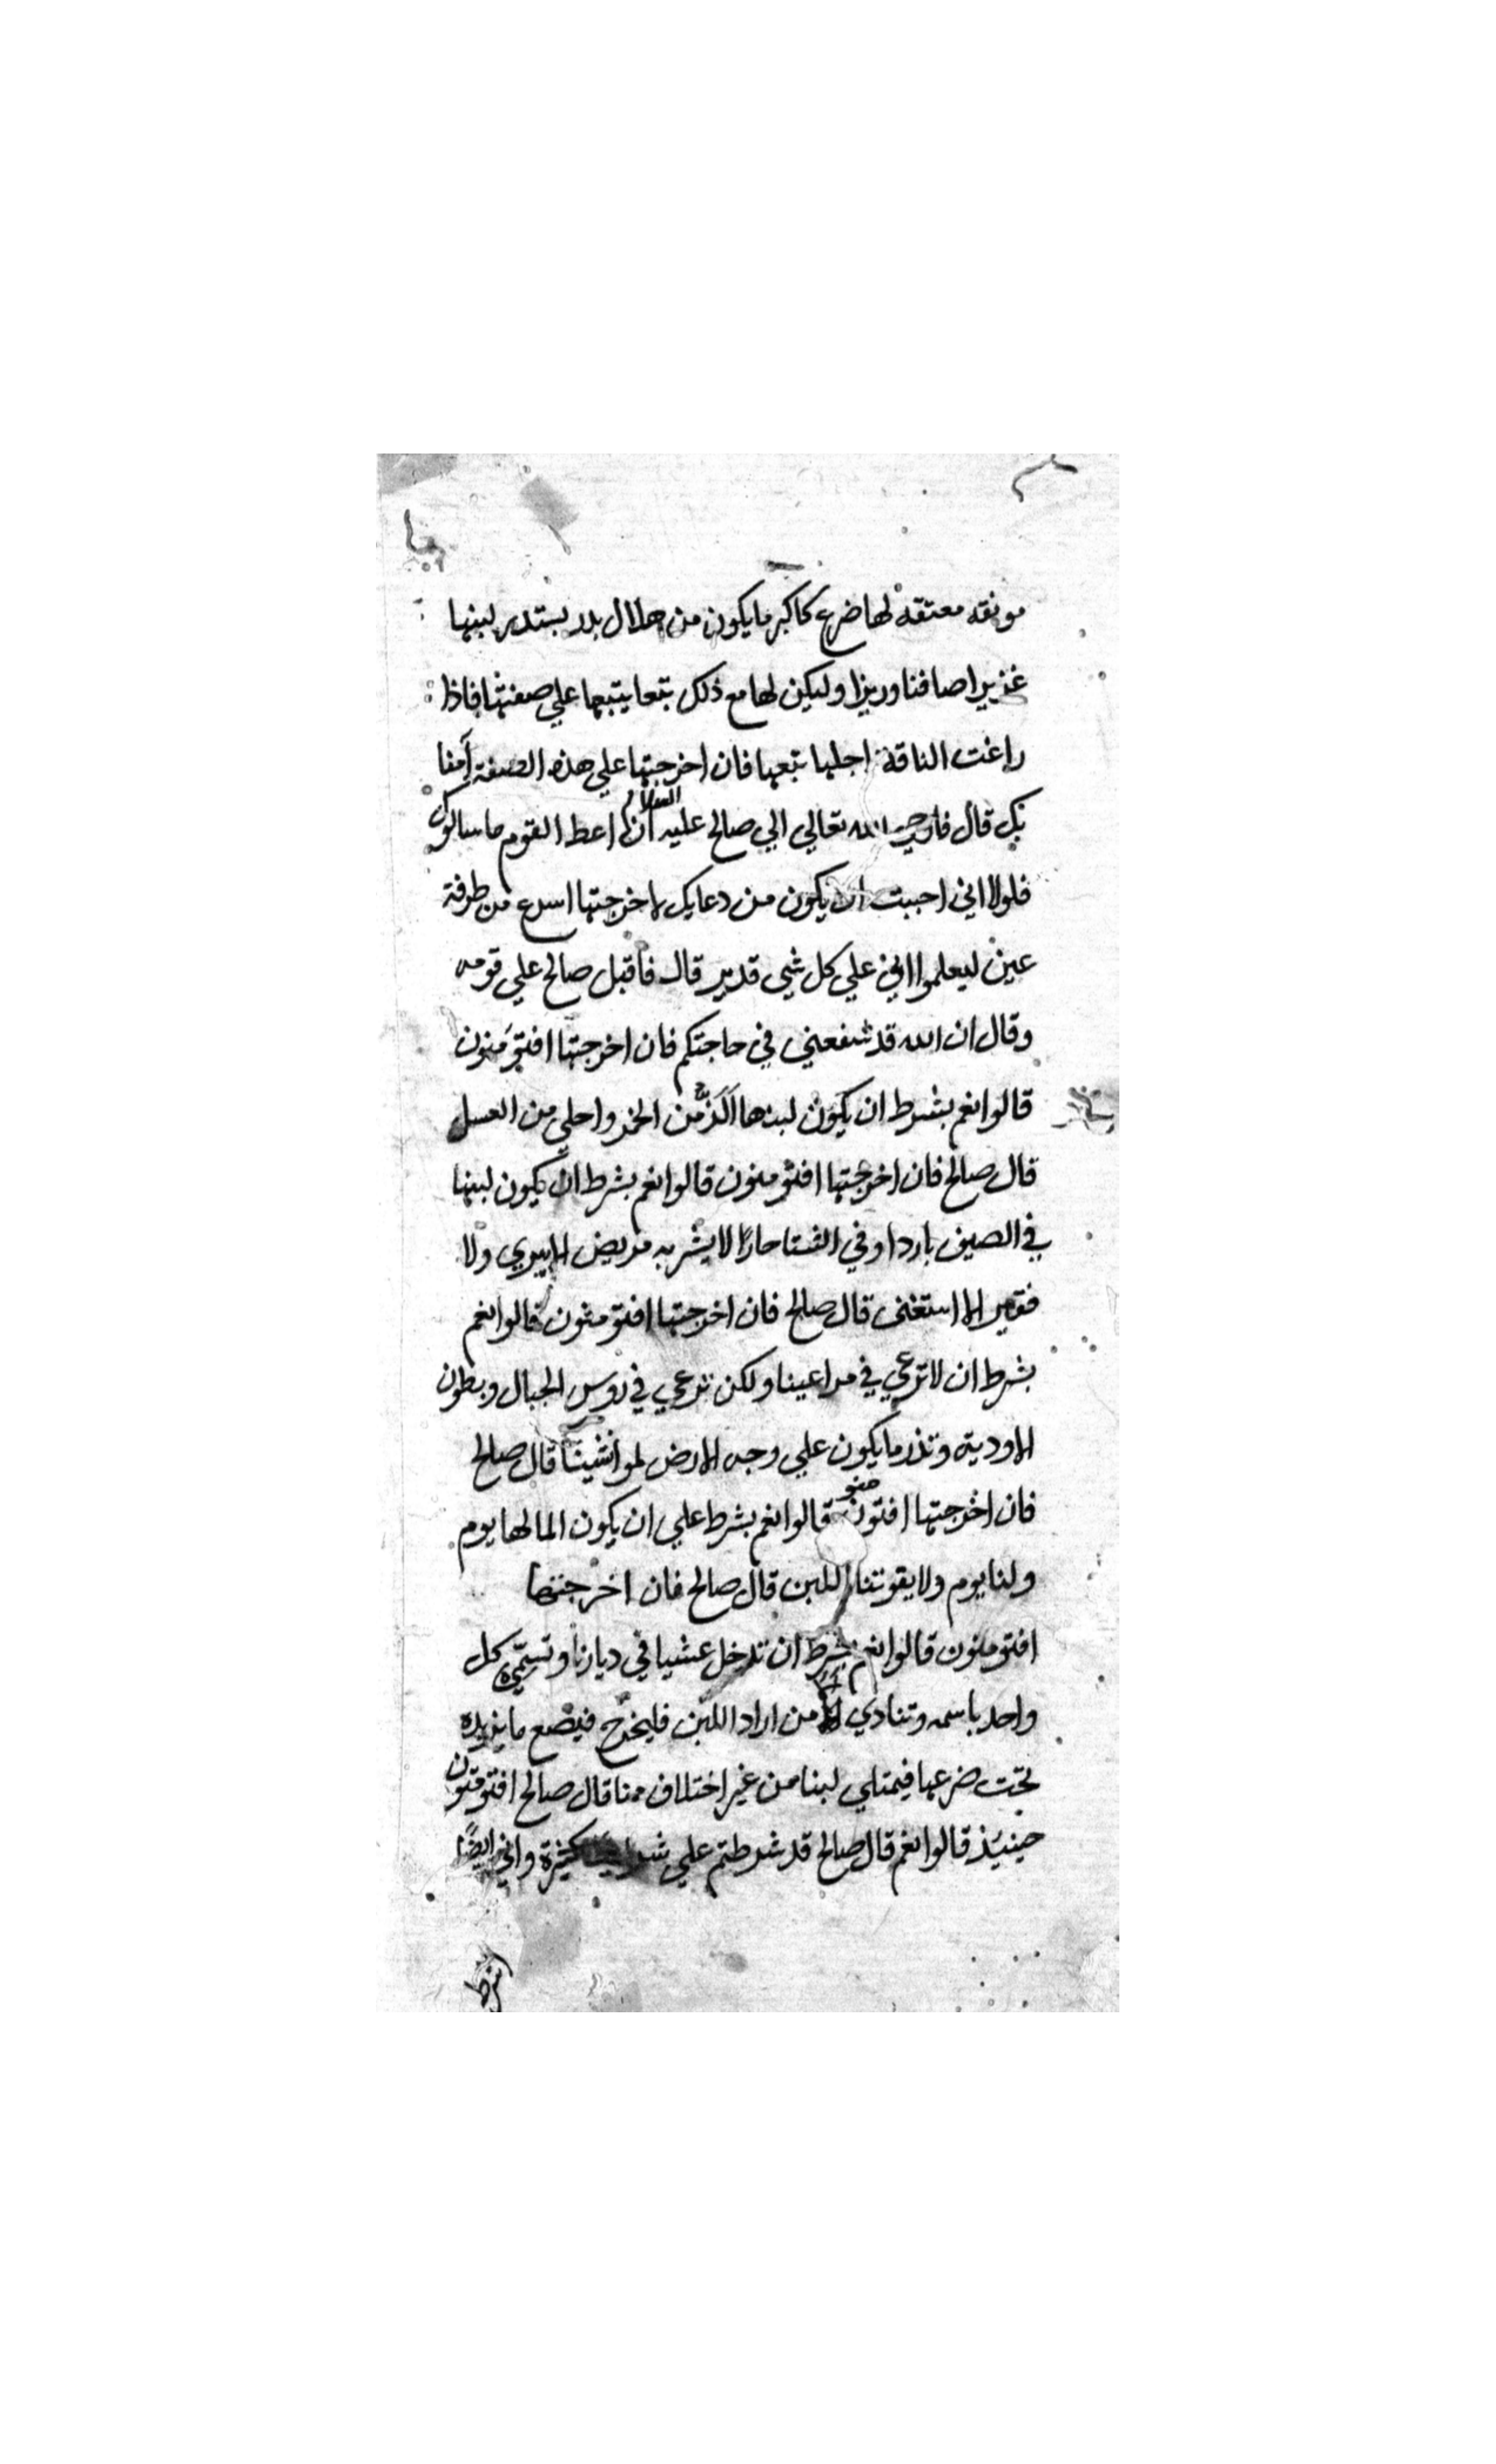 مونقه معتقه لها ضرع كاكبر ما يكون من هلال بدر يستدير لبنها
غزيرا صافنا وليكن لها مع ذلك تبعا يتبعها علي صفتها فاذا
راغت الناقة اجلها تبعها فان اخرجتها علي هذه الصفة آمنا
بك قال فاوحي الله تعالي الي صالح عليه السلام ان اعط القوم ما سالوك
فلولا اني احببت ان يكون من دعايك لاخرجتها اسرع من طرفة
عين ليعلموا اني علي كل شي قدير قال فاقبل صالح علي قومه
وقال ان الله قد شفعني في حاجتكم فان اخرجتها افتؤمنون
قالوا نعم بشرط ان يكون لبنها الذ من الخمر واحلي من العسل
قال صالح فان اخرجتها افتؤمنون قالوا نعم بشرط ان يكون لبنها
في الصيف باردا وفي الشتا حارا لا يشربه مريض الا يبري ولا
فقير الا استغني قال صالح فان اخرجتها افتؤمنون قالوا نعم
بشرط ان لا ترعي في مراعينا ولكن ترعي في روس الجبال وبطون
الاودية وتذر ما يكون علي وجه الارض لمواشينا قال صالح
فان اخرجتها افتومنون قالوا نعم بشرط علي ان يكون الما لها يوم
ولنا يوم ولا يقوتنا اللبن قال صالح فان اخرجتها
افتومنون قالوا نعم بشرط ان تدخل عشيا في ديارنا وتسمي كل
واحد باسمه وتنادي الا من اراد اللبن فليخرج فيضع ما يريده
تحت ضرعها فيمتلي لبنا من غير اختلاف منا قال صالح افتومنون
حينيذ قالوا نعم قال صالح قد شرطتم علي كثيرة واني ايضا
اشرط